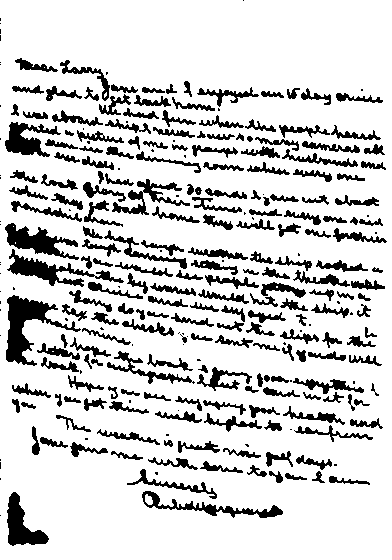 Dear Larry,
Jane and I enjoyed our 15 day cruise
and glad to get back home.
We had fun when the people heard
I was aboard ship. I never saw so many cameras all
wanted a picture of me in groups with husbands and
even in the dining room when every one
our dress.
I had about 30 cards I gave out about
the book Glory of Their Times. and every one said
when they get back home they will get one for their
grandchildren.
We had rough weather the ship rocked a
was kept dancing sitting in the theatre
you would see people jump up in a
when the big waves would hit the ship. it
cruise and we enjoyed it.
Larry do you send out the slips for the
tax the checks; are sent me if you do will
mail mine.
I hope the book is going good everywhere I
get letters for autographs I put a card in it for
the book.
Hope you are enjoying good health and
when you get time will be glad to hear from
you
The weather is great nice golf days.
Jane joins me with love to you I am
Sincerely
Rube Marquard